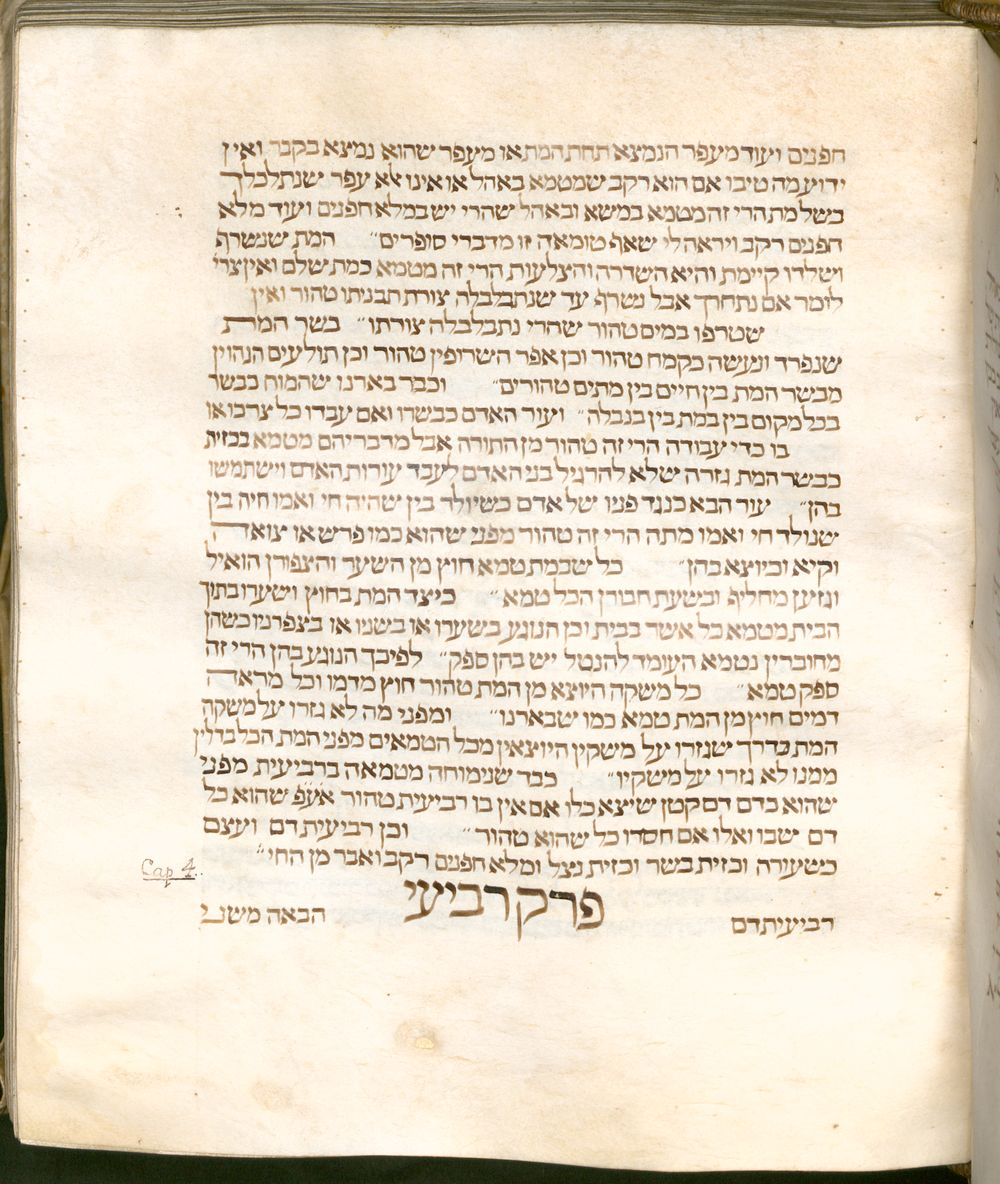 חפנים ועוד מעפר הנמצא תחת המת או מעפר שהוא נמצא בקבר ואין
ידוע מה טיבו אם הוא רקב שמטמא באהל או אינו אלא עפר שנתלכלך
בשל מת הרי זה מטמא במשא ובאהל שהרי יש במלא חפנים ועוד מלא
חפנים רקב ויראה לי שאף טומאה זו מדברי סופרים״ המת שנשרף
ושלדו קיימת והיא השדרה והצלעות הרי זה מטמא כמת שלם ואין צרי׳
לומר אם נתחרך אבל נשרף עד שנתבלבלה צורת תבניתו טהור ואין
שטרפו במים טהור שהרי נתבלבלה צורתו״ בשר המת
שנפרד ונעשה כקמח טהור וכן אפר השרופין טהור וכן תולעים הנהוין
מבשר המת בין חיים בין מתים טהורים״ וכבר בארנו שהמוח כבשר
בכל מקום בין במת בין בנבלה״ ועור האדם כבשרו ואם עבדו כל צרכו או
בו כדי עבודה הרי זה טהור מן התורה אבל מדבריהם מטמא בכזית
כבשר המת גזרה שלא להרגיל בני האדם לעבד עורות האדם וישתמשו
בהן״ עור הבא כנגד פניו של אדם כשיולד בין שהיה חי ואמו חיה בין
שנולד חי ואמו מתה הרי זה טהור מפני שהוא כמו פרש או צואה
וקיא וכיוצא בהן״ כל שבמת טמא חוץ מן השער והצפורן הואיל
וגזען מחליף ובשעת חבורן הכל טמא״ כיצד המת בחוץ ושערו בתוך
הבית מטמא כל אשר בבית וכן הנוגע בשערו או בשניו או בצפרניו כשהן
מחוברין נטמא העומד להנטל יש בהן ספק״ לפיכך הנוגע בהן הרי זה
ספק טמא״ כל משקה היוצא מן המת טהור חוץ מדמו וכל מראה
דמים חוץ מן המת טמא כמו שבארנו״ ומפני מה לא גזרו על משקה
המת כדרך שגזרו על משקין היוצאין מכל הטמאים מפני המת הכל בדלין
ממנו לא גזרו על משקיו״ כבד שנימוחה מטמאה ברביעית מפני
שהוא כדם דם קטן שיצא כלו אם אין בו רביעית טהור אעפ שהוא כל
דם שבו ואלו אם חסרו כל שהוא טהור״ וכן רביעית דם ועצם
כשעורה וכזית בשר וכזית נצל ומלא חפנים רקב ואבר מן החי״
Cap 4.
פרק רביעי
רביעית דם הבאה משני